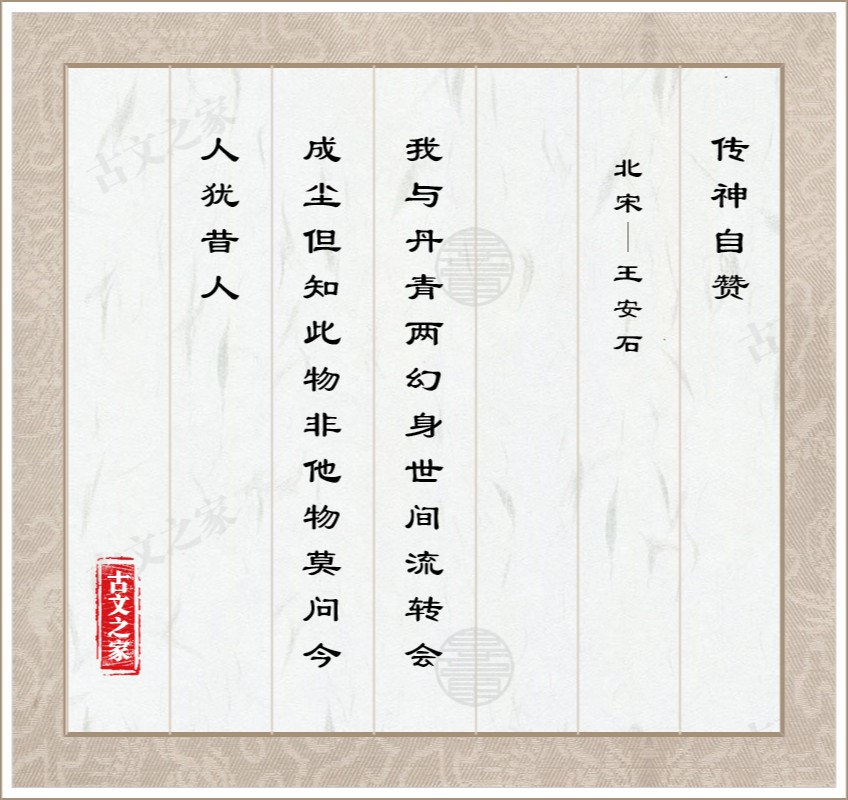 传神自赞
北宋—王安石
我与丹青两幻身世间流转会
成尘但知此物非他物莫问今
人犹昔人
古文之家
古文之家
古文之家
古